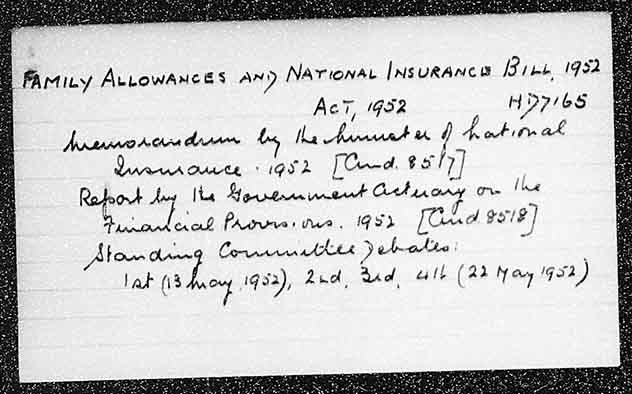 FAMILY ALLOWANCES AND NATIONAL INSURANCE BILL, 1952
ACT, 1952 HD7165
Memorandum by the Minister of National
Insurance. 1952 [Cmd. 8517]
Report by the Government Actuary on the
Financial Provisions. 1952 [Cmd 8518]
Standing Committee Debates:
1st (13 May, 1952), 2nd, 3rd, 4th (22 May 1952)